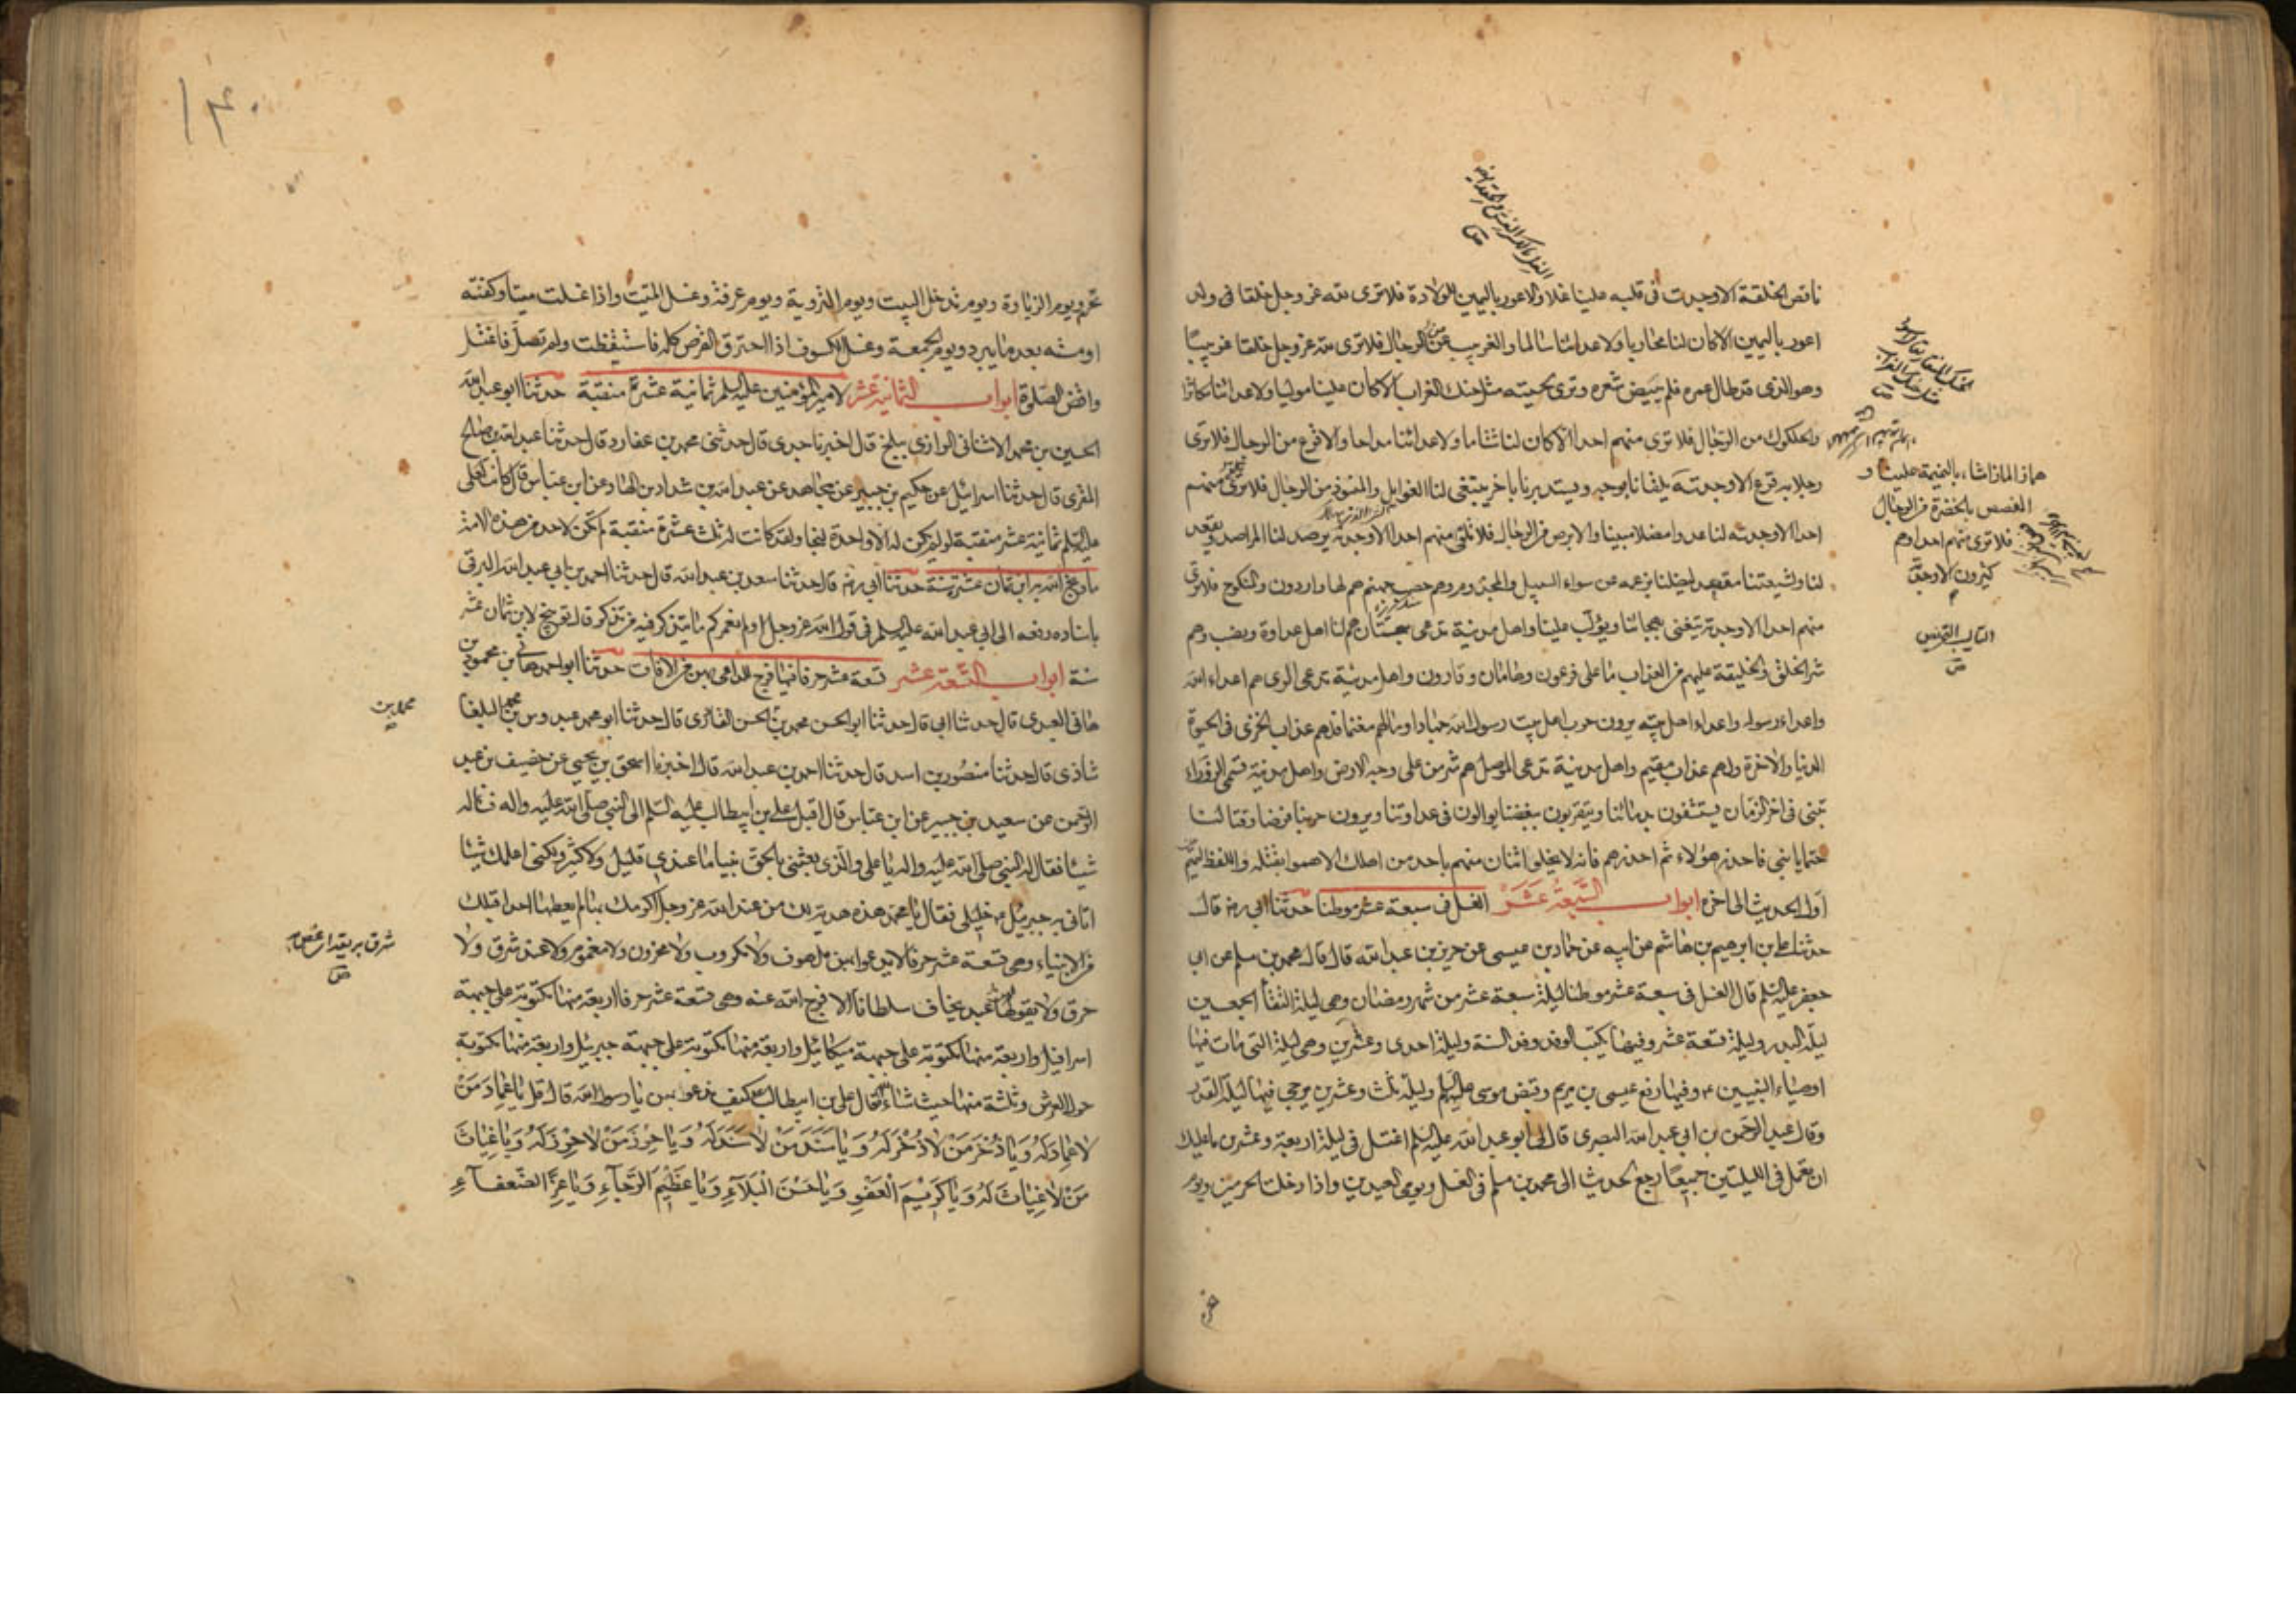 ناقص الخلقة الا وجدت فى قلبه علينا غلا والاعور باليمين للولادة فلا ترى لله عز وجل خلقا فى ولد
اعور باليمين الا كان لنا محاربا ولاعدائنا مسالما والغربيب من الرجال فلا ترى لله عز وجل خلقا غربيبا
وهو الذى قد طال عمره فلم يبيض شعره وترى لحيته مثل حنك الغراب الا كان علينا مولبا ولاعدائنا مكاثرا
والحلكوك من الرجال فلا ترى منهم احدا الا كان لنا شتاما ولاعدائنا مداحا والاقرع من الرجال فلا ترى
رجلا به قرع الا وجدته
احدا الا وجدته لنا عدوا مضلا مبينا والابرص من الرجال فلا تلقى منهم احدا الا وجدته يرصد لنا المراصد ويقعد
لنا ولشيعتنا مقعد ليضلنا بزعمه عن سواء السبيل والمجذوم وهم حصب جهنم هم لها واردون والمنكوح فلا ترى
منهم احدا الا وجدته يتغنى بهجائنا ويؤلب علينا واهل مدينة تدعى سجستان هم لنا اهل عداوة ونصب وهم
شر الخلق والخليقة عليهم من العذاب ما على فرعون وهامان وقارون واهل مدينة تدعى الرى هم اعداء الله
واعداء رسوله واعداء اهل بيته يرون حرب اهل بيت رسول الله جهادا ومالهم مغنما فلهم عذاب الخزى فى الحيوة
الدنيا والاخرة ولهم عذاب مقيم واهل مدينة تدعى الموصل هم شر من على وجه الارض واهل مدينة تسمى الزوراء
تبنى فى اخر الزمان يستشفون بدمائنا ويتقربون ببغضنا يوالون فى عداوتنا ويرون حربنا فرضا وقتالنا
حتما يا بنى فاحذر هؤلاء ثم احذرهم فانه لا يخلو اثنان منهم باحد من اهلك الا هموا بقتله واللفظ لتميم من
اول الحديث الى اخره ابواب السبعة عشر الغسل فى سبعة عشر موطنا حدثنا ابى ره قال
حدثنا على بن ابرهيم بن هاشم عن ابيه عن حماد بن عيسى عن حريز بن عبد الله قال قال محمد بن مسلم عن ابى
جعفر عليه السلم قال الغسل فى سبعة عشر موطنا ليلة سبعة عشر من شهر رمضان وهى ليلة التقاء الجمعين
ليلة البدر وليلة تسعة عشر وفيها يكتب الوفد وفد السنة وليلة احدى وعشرين وهى ليلة التى مات فيها
اوصياء النبيين ع وفيها رفع عيسى بن مريم وقبض موسى عليه السلم وليلة ثلث وعشرين يرجى فيها ليلة القدر
وقال عبد الرحمن بن ابى عبد الله البصرى قال لى ابو عبد الله عليه السلم اغتسل فى ليلة اربعة وعشرين ما عليك
ان تعمل فى الليلتين جميعا رجع الحديث الى محمد بن مسلم فى الغسل ويومى العيدين واذا دخلت الحرمين ويوم
هماز الماز مشاء بالنميمة علينا و
المفصص بالخضرة من الرجال
فلا ترى منهم احدا وهم
كثيرون الا وجدته
١٤٠
تحرم ويوم الزيارة ويوم تدخل البيت ويوم التروية ويوم عرفة وغسل الميت واذا غسلت ميتا وكفنته
او مسته بعد ما يبرد ويوم الجمعة وغسل الكسوف اذا احترق القرص كله فاستيقظت ولم تصل فاغتسل
واقض الصلوة ابواب الثمانية عشر لامير المؤمنين عليه السلم ثمانية عشر منقبة حدثنا ابو عبد الله
الحسين بن محمد الاشنانى الرازى ببلخ قال اخبرنا جدى قال حدثنى محمد بن عمار قال حدثنا عبد الله بن صالح
المقرى قال حدثنا اسرائيل عن حكيم بن جبير عن مجاهد عن عبد الله بن شداد بن الهاد عن ابن عباس قال كانت لعلى
عليه السلم ثمانية عشر منقبة لو لم يكن له الا واحدة لنجا ولقد كانت له ثلث عشرة منقبة لم تكن لاحد من هذه الامة
ما وبخ الله به ابن ثمان عشر سنة حدثنا ابى ره قال حدثنا سعد بن عبد الله قال حدثنا احمد بن ابى عبد الله البرقى
باسناده رفعه الى ابى عبد الله عليه السلم فى قول الله عز وجل اولم نعمركم ما يتذكر فيه من تذكر قال توبيخ لابن ثمان عشر
سنة ابواب التسعة عشر تسعة عشر حرفا فيها فرج للداعى بهن من الافات حدثنا ابو احمد هانى بن محمود بن
هانى العبدى قال حدثنا ابى قال حدثنا ابو الحسن محمد بن الحسن القائرى قال حدثنا ابو محمد عبدوس بن محمد البلغا
شاذى قال حدثنا منصور بن اسد قال حدثنا احمد بن عبد الله قال اخبرنا اسحق بن يحيى عن خصيف بن عبد
الرحمن عن سعيد بن جبير عن ابن عباس قال اقبل على بن ابيطالب عليه السلم الى النبى صلى الله عليه واله فساله
شيئا فقال له النبى صلى الله عليه واله يا على والذى بعثنى بالحق نبيا ما عندى قليل ولا كثير ولكنى اعلمك شيئا
اتانى به جبرئيل ع خليلى فقال يا محمد هذه هدية لك من عند الله عز وجل اكرمك بها لم يعطها احدا قبلك
من الانبياء وهى تسعة عشر حرفا لا يدعوا بهن ملهوف ولا مكروب ولا محزون ولا مغموم ولا عند شرق ولا
حرق ولا يقولها عبد يخاف سلطانا الا فرج الله عنه وهى تسعة عشر حرفا اربعة منها مكتوبة على جبهة
اسرافيل واربعة منها مكتوبة على جبهة ميكائيل واربعة منها مكتوبة على جبهة جبرئيل واربعة منها مكتوبة
حول العرش وثلثة منها حيث شاء الله فقال على بن ابيطالب ع كيف ندعوا بهن يا رسول الله قال قل يا عماد من
لا عماد له ويا ذخر من لا ذخر له ويا سند من لا سند له ويا حرز من لا حرز له ويا غياث
من لا غياث له ويا كريم العفو ويا حسن البلاء ويا عظيم الرجاء ويا عز الضعفاء
محمد بن
شرق بريقه اى غص